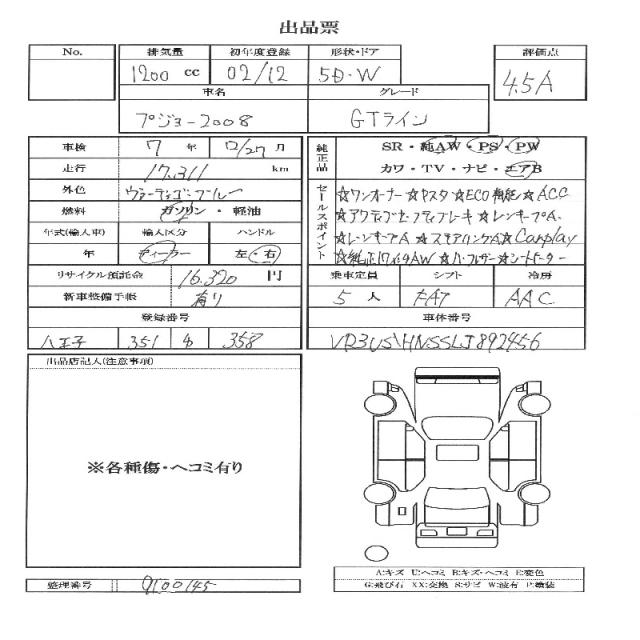 出品票
No. 排気量 初年度登録 形状・ドア 評価点
1200 cc 02/12 5D・W 4.5A
車名 グレード
プジョー2008 GTライン
車検 7年 12/27月 純正品 SR・純AW・PS・PW
走行 17,311 km カワ・TV・ナビ・エアB
外色 ヴァーティゴ・ブルー セールスポイント ☆ワンオーナー ☆Pスタ ☆ECO機能 ☆ACC
燃料 ガソリン・軽油 ☆アクティブセーフティブレーキ ☆レンキープA.
年式(輸入車) 輸入区分 ハンドル ☆レーンキープA ☆ステアリングA ☆Carplay
年 ディーラー 左・右 ☆純正17インチAW ☆シートヒーター
リサイクル預託金 16,320 円 乗車定員 シフト 冷房
新車整備手帳 有り 5人 FAT AAC
登録番号 車体番号
八王子 351 358 VR3USHNSSLJ892456
出品店記入(注意事項)
※各種傷・ヘコミ有り
A:キズ U:ヘコミ B:キズ・ヘコミ E:変色
整理番号 9100145 G:飛び石 XX:交換 S:サビ W:波有 P:塗装